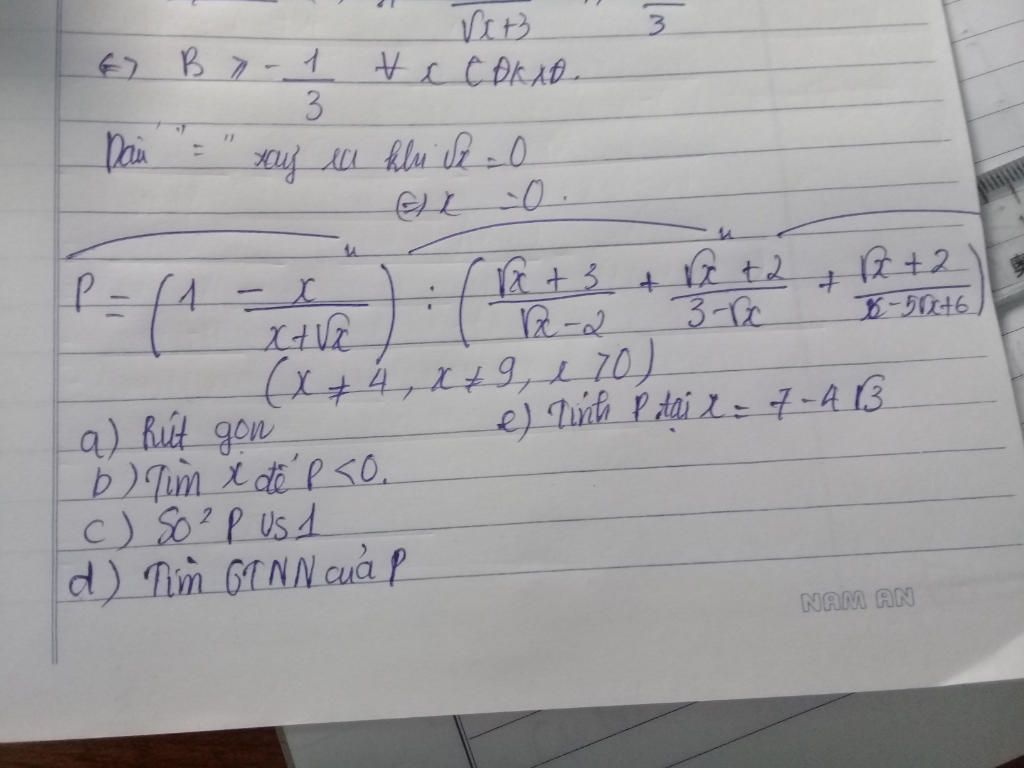 √x+3 3
<=> B ≥ - 1/3 ∀ x ∈ ĐKXĐ.
Dấu "=" xảy ra khi √x = 0
<=> x = 0.
P = (1 - x/(x+√x)) : ((√x + 3)/(√x - 2) + (√x + 2)/(3 - √x) + (√x + 2)/(x - 5√x + 6))
(x ≠ 4, x ≠ 9, x > 0)
a) Rút gọn
e) Tính P tại x = 7 - 4√3
b) Tìm x để P < 0.
c) So² P vs 1
d) Tìm GTNN của P
NAM AN